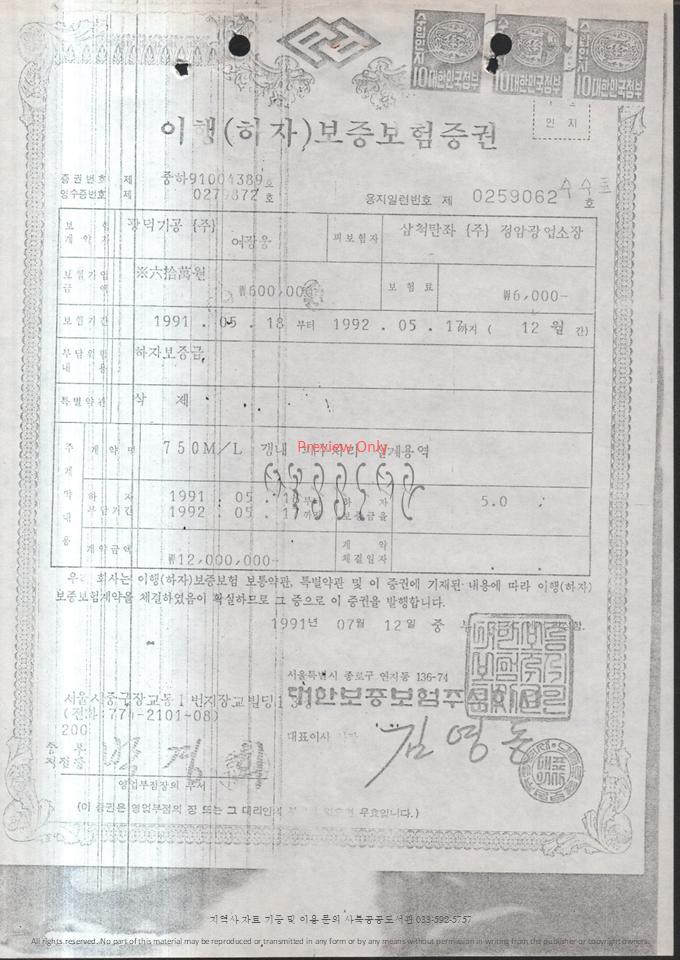 수입인지 수입인지 수입인지
10 대한민국정부 10 대한민국정부 10 대한민국정부
인 지
이행(하자)보증보험증권
증권번호 제 중하91004389호
영수증번호 제 호
용지일련번호 제 0259062 호
보험계약자 광덕기공 {주}
여광웅
피보험자 삼척탄좌 {주} 정암광업소장
보험가입금액 ※六拾萬원
₩600,000
보험료 ₩6,000-
보험기간 1991 . 05 . 18 부터 1992 . 05 . 17까지 ( 12 월 간)
부담위험내용 하자보증금
특별약관 삭 제
주계약내용
계약명 750M/L 갱내 설계용역
하자부담기간 1991 . 05 . 18부터
1992 . 05 . 17까지
하자보증금율 5.0
계약금액 ₩12,000,000-
계약체결일자
우리 회사는 이행(하자)보증보험 보통약관, 특별약관 및 이 증권에 기재된 내용에 따라 이행(하자)
보증보험계약을 체결하였음이 확실하므로 그 증으로 이 증권을 발행합니다.
1991년 07월 12일 중 부
서울특별시 종로구 연지동 136-74
대한보증보험주
서울시중구장교동1번지장교빌딩
(전화:77 -2101~08)
200
대표이사 김영동
중 부
지점장
영업부점장의 부서
(이 증권은 영업부점의 장 또는 그 대리인의 무효입니다.)
Preview Only
지역사 자료 기증 및 이용 문의 사북공공도서관 033-592-5757
All rights reserved. No part of this material may be reproduced or transmitted in any form or by any means without permission in writing from the publisher or copyright owners.